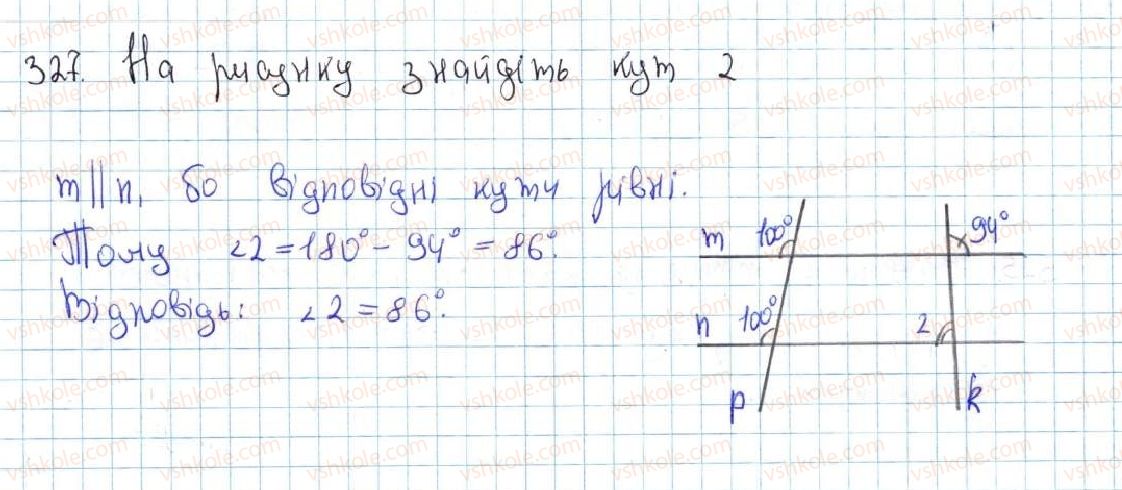 327. На рисунку знайдіть кут 2
m||n, бо відповідні кути рівні.
Тому ∠2 = 180° - 94° = 86°.
Відповідь: ∠2 = 86°.
m 100° 94°
n 100° 2
p k